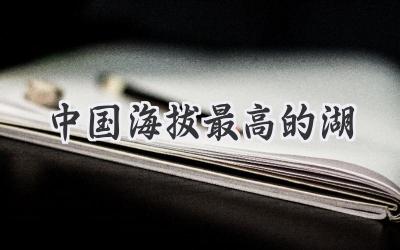 中国海拔最高的湖